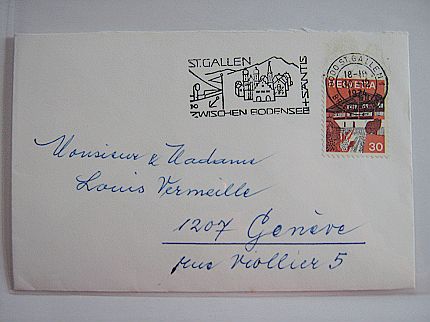 ST. GALLEN
ZWISCHEN BODENSEE + SÄNTIS
ST. GALLEN
HELVETIA
30
Monsieur & Madame
Louis Vermeille
1207 Genève
rue Viollier 5